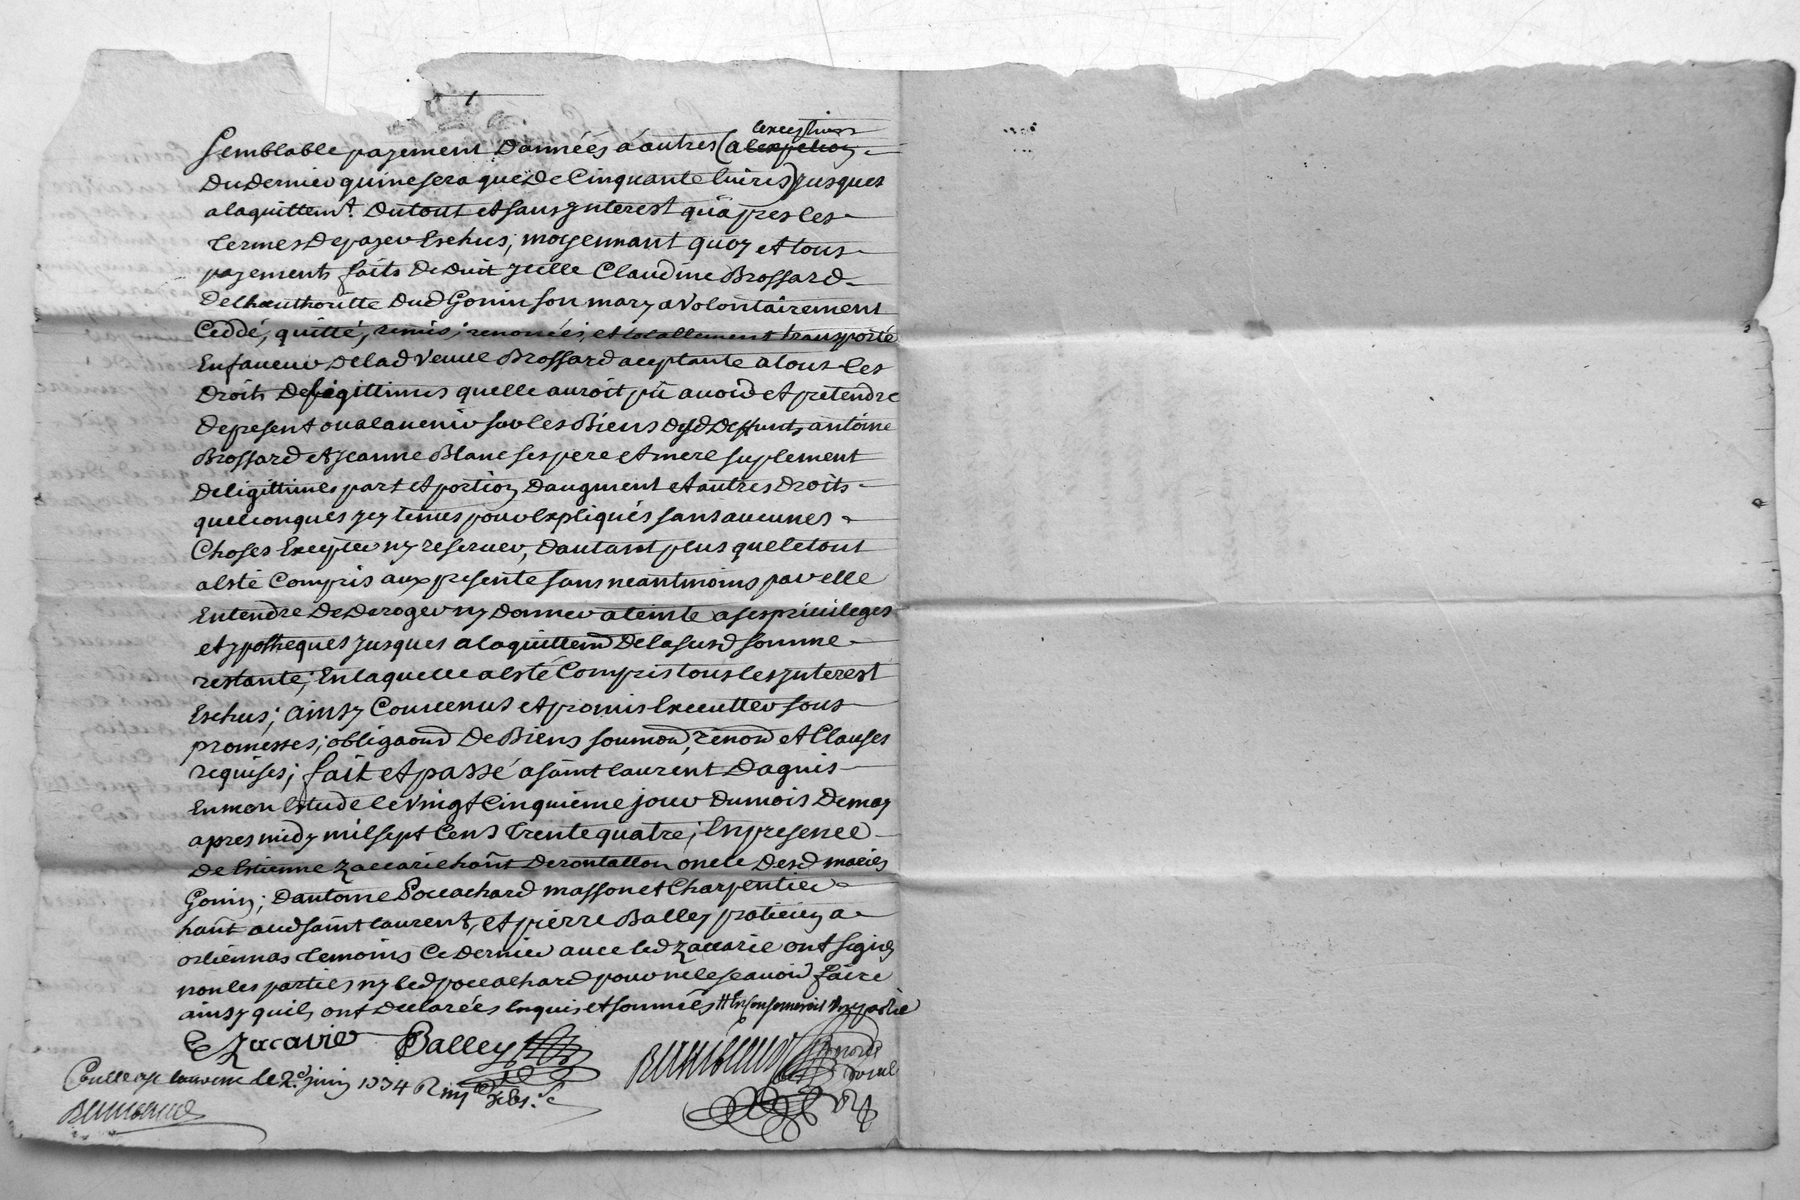 lexception
Semblable payement D'années á autres (a lexpetion
Du Dernier qui ne sera que De Cinquante livres) Jusques
a laquittemt. Du tout et sans Jnterest qu'apres les
termes De payer Escheus; moyennant quoy et tous
payements faits De Duit Jcelle Claudine Brossard
De lhauthoritte Dud Gonin son mary a volontairement
Ceddé, quitté, remis, renoncé, et totallement transporté
En faveur De lad veuve Brossard aceptante a tous les
Droits De légittimes quelle auroit pû avoir et pretendre
De present ou a lavenir sur les Biens Desd Deffunts antoine
Brossard et Jeanne Blanc ses pere et mere suplement
De ligittimes part et portion Daugment et autres Droits
quelconques Jcy tenus pour Expliqués sans aucunes
Choses Excepter ny reserver, Dautant plus que le tout
a Esté Compris aux presente sans neantmoins par elle
Entendre De Deroger ny Donner ateinte a ses privileges
et ypotheques Jusques a laquittem De la susd somme
restante; En laquelle a Esté Compris tous les Jnterest
Escheus; ainsy Convenus et promis Executter sous
promesses; obligaons De Biens soumon, renon et Clauses
requises; fait et passé a saint laurent Dagnis
En mon Estude le vingt Cinquieme jour Du mois De may
apres midy mil sept Cens Trente quatre; En presence
De Estienne Zaccarie hant De rontallon oncle Desd mariés
Gonin; D'antoine Poccachard masson et Charpentier
hant aud saint laurent, et pierre Balley praticien a
orliennas temoins Ce Dernier avec led Zaccarie ont signés
non les parties ny led poccachard pour ne le scavoir faire
ainsy quils ont Declarées Enquis et sommés
E Zacarie Balley
le 2e juin 1734